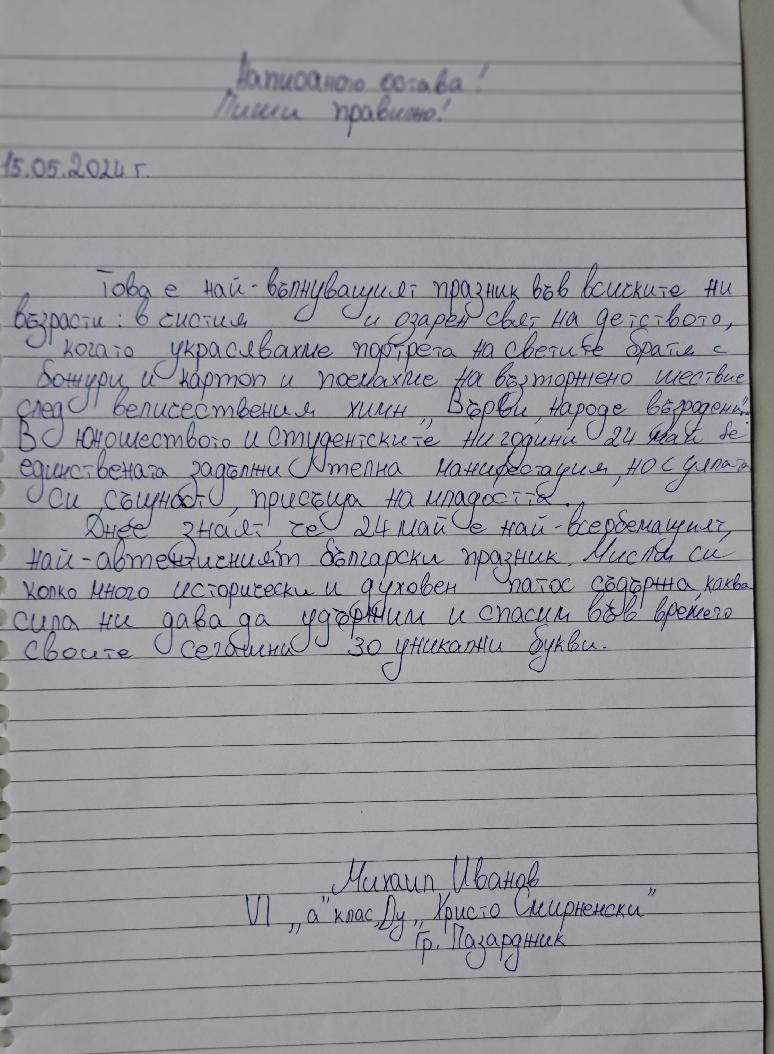 Написаното остава!
Пиши правилно!
15.05.2024 г.
Това е най-вълнуващият празник във всиските ни
възрасти: в систия и озарен свят на детството,
когато украсявахме портрета на светите братя с
божури и картоп и поемахме на възторжено шествие
след велисествения химн „Върви, народе възродени“.
В юношеството и студентските ни години 24 май бе
единствената задължителна манифестация, но с цялата
си същност, присъща на младостта.
Днес знаят, че 24 май е най-всеобемащият,
най-автентисният български празник. Мисля си
колко много исторически и духовен патос съдържа, каква
сила ни дава да удържим и спасим във времето
своите сегашни 30 уникални букви.
Михаил Иванов
VI „а“ клас, Ду „Христо Смирненски“
гр. Пазарджик